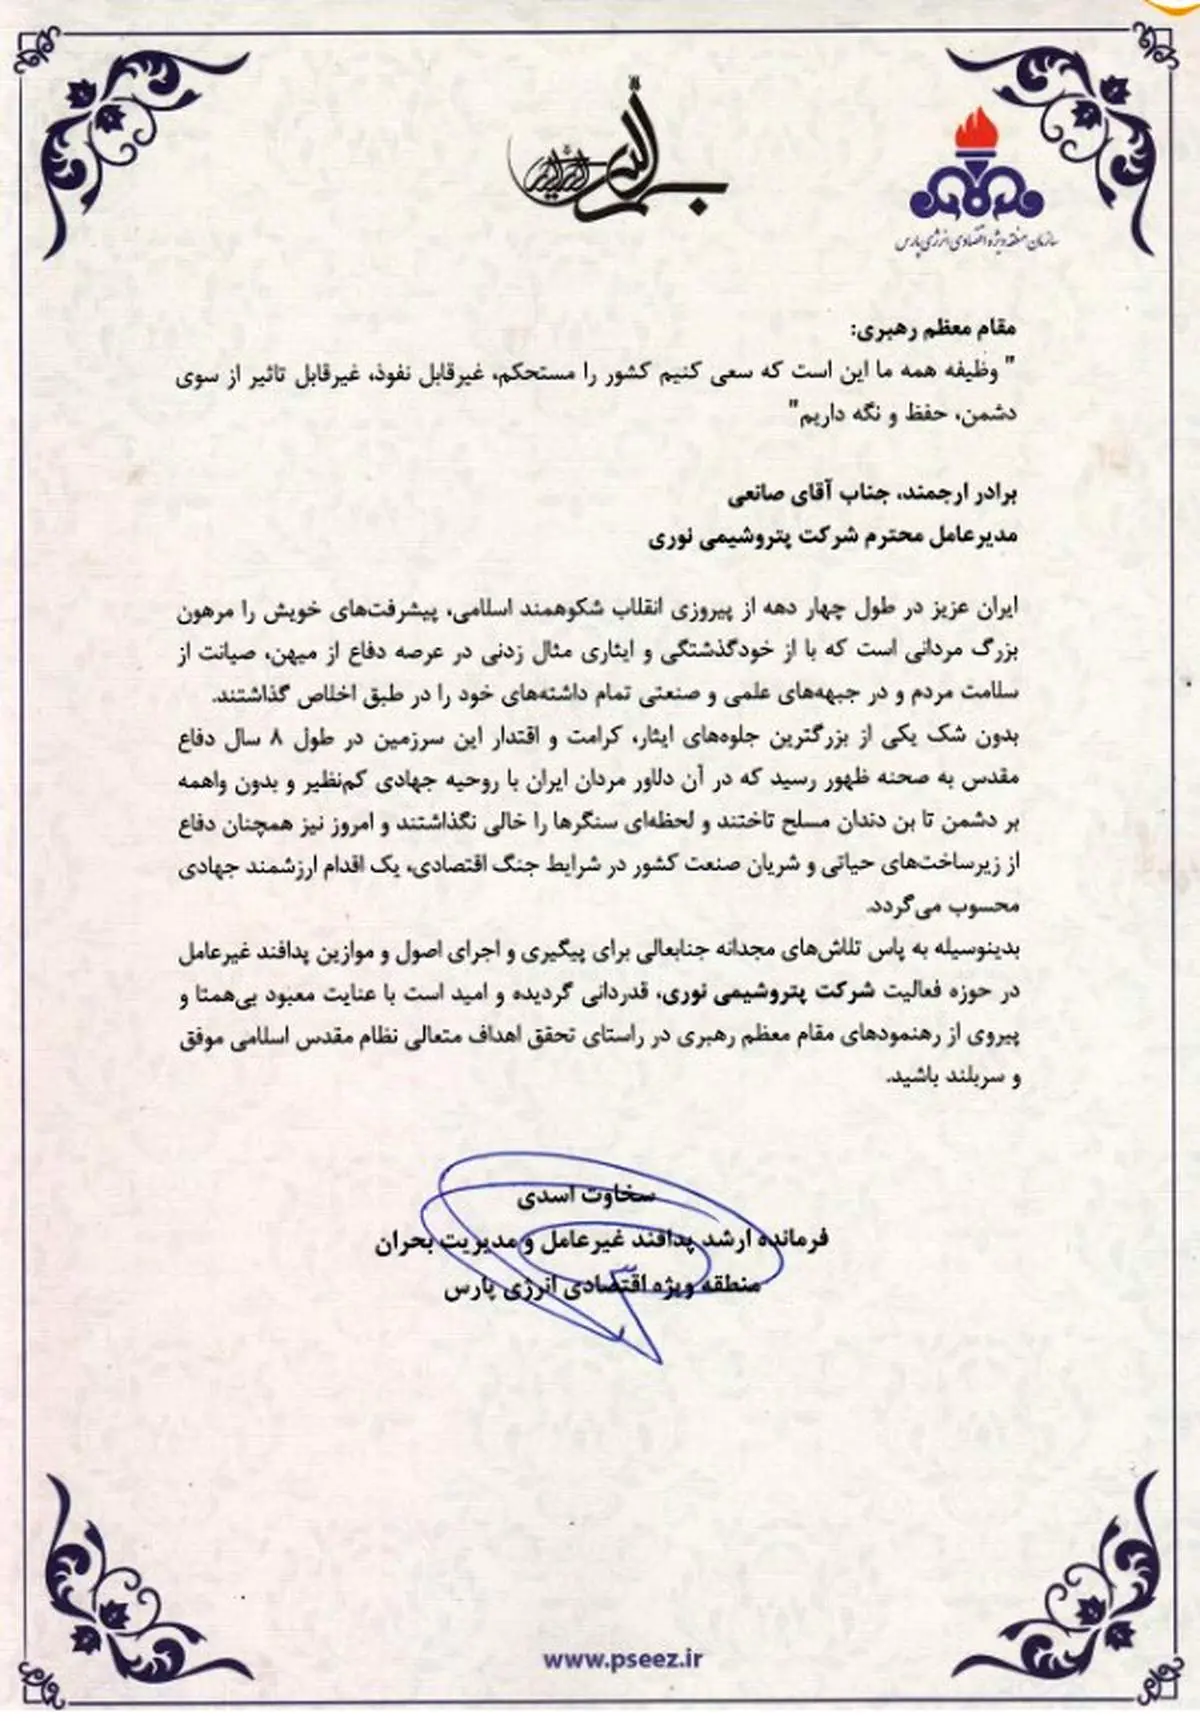 بسم الله الرحمن الرحیم
سازمان منطقه ویژه اقتصادی انرژی پارس
مقام معظم رهبری:
" وظیفه همه ما این است که سعی کنیم کشور را مستحکم، غیرقابل نفوذ، غیرقابل تاثیر از سوی
دشمن، حفظ و نگه داریم"
برادر ارجمند، جناب آقای صانعی
مدیرعامل محترم شرکت پتروشیمی نوری
ایران عزیز در طول چهار دهه از پیروزی انقلاب شکوهمند اسلامی، پیشرفت‌های خویش را مرهون
بزرگ مردانی است که با از خودگذشتگی و ایثاری مثال زدنی در عرصه دفاع از میهن، صیانت از
سلامت مردم و در جبهه‌های علمی و صنعتی تمام داشته‌های خود را در طبق اخلاص گذاشتند.
بدون شک یکی از بزرگترین جلوه‌های ایثار، کرامت و اقتدار این سرزمین در طول ۸ سال دفاع
مقدس به صحنه ظهور رسید که در آن دلاور مردان ایران با روحیه جهادی کم‌نظیر و بدون واهمه
بر دشمن تا بن دندان مسلح تاختند و لحظه‌ای سنگرها را خالی نگذاشتند و امروز نیز همچنان دفاع
از زیرساخت‌های حیاتی و شریان صنعت کشور در شرایط جنگ اقتصادی، یک اقدام ارزشمند جهادی
محسوب می‌گردد.
بدینوسیله به پاس تلاش‌های مجدانه جنابعالی برای پیگیری و اجرای اصول و موازین پدافند غیرعامل
در حوزه فعالیت شرکت پتروشیمی نوری، قدردانی گردیده و امید است با عنایت معبود بی‌همتا و
پیروی از رهنمودهای مقام معظم رهبری در راستای تحقق اهداف متعالی نظام مقدس اسلامی موفق
و سربلند باشید.
سخاوت اسدی
فرمانده ارشد پدافند غیرعامل و مدیریت بحران
منطقه ویژه اقتصادی انرژی پارس
www.pseez.ir